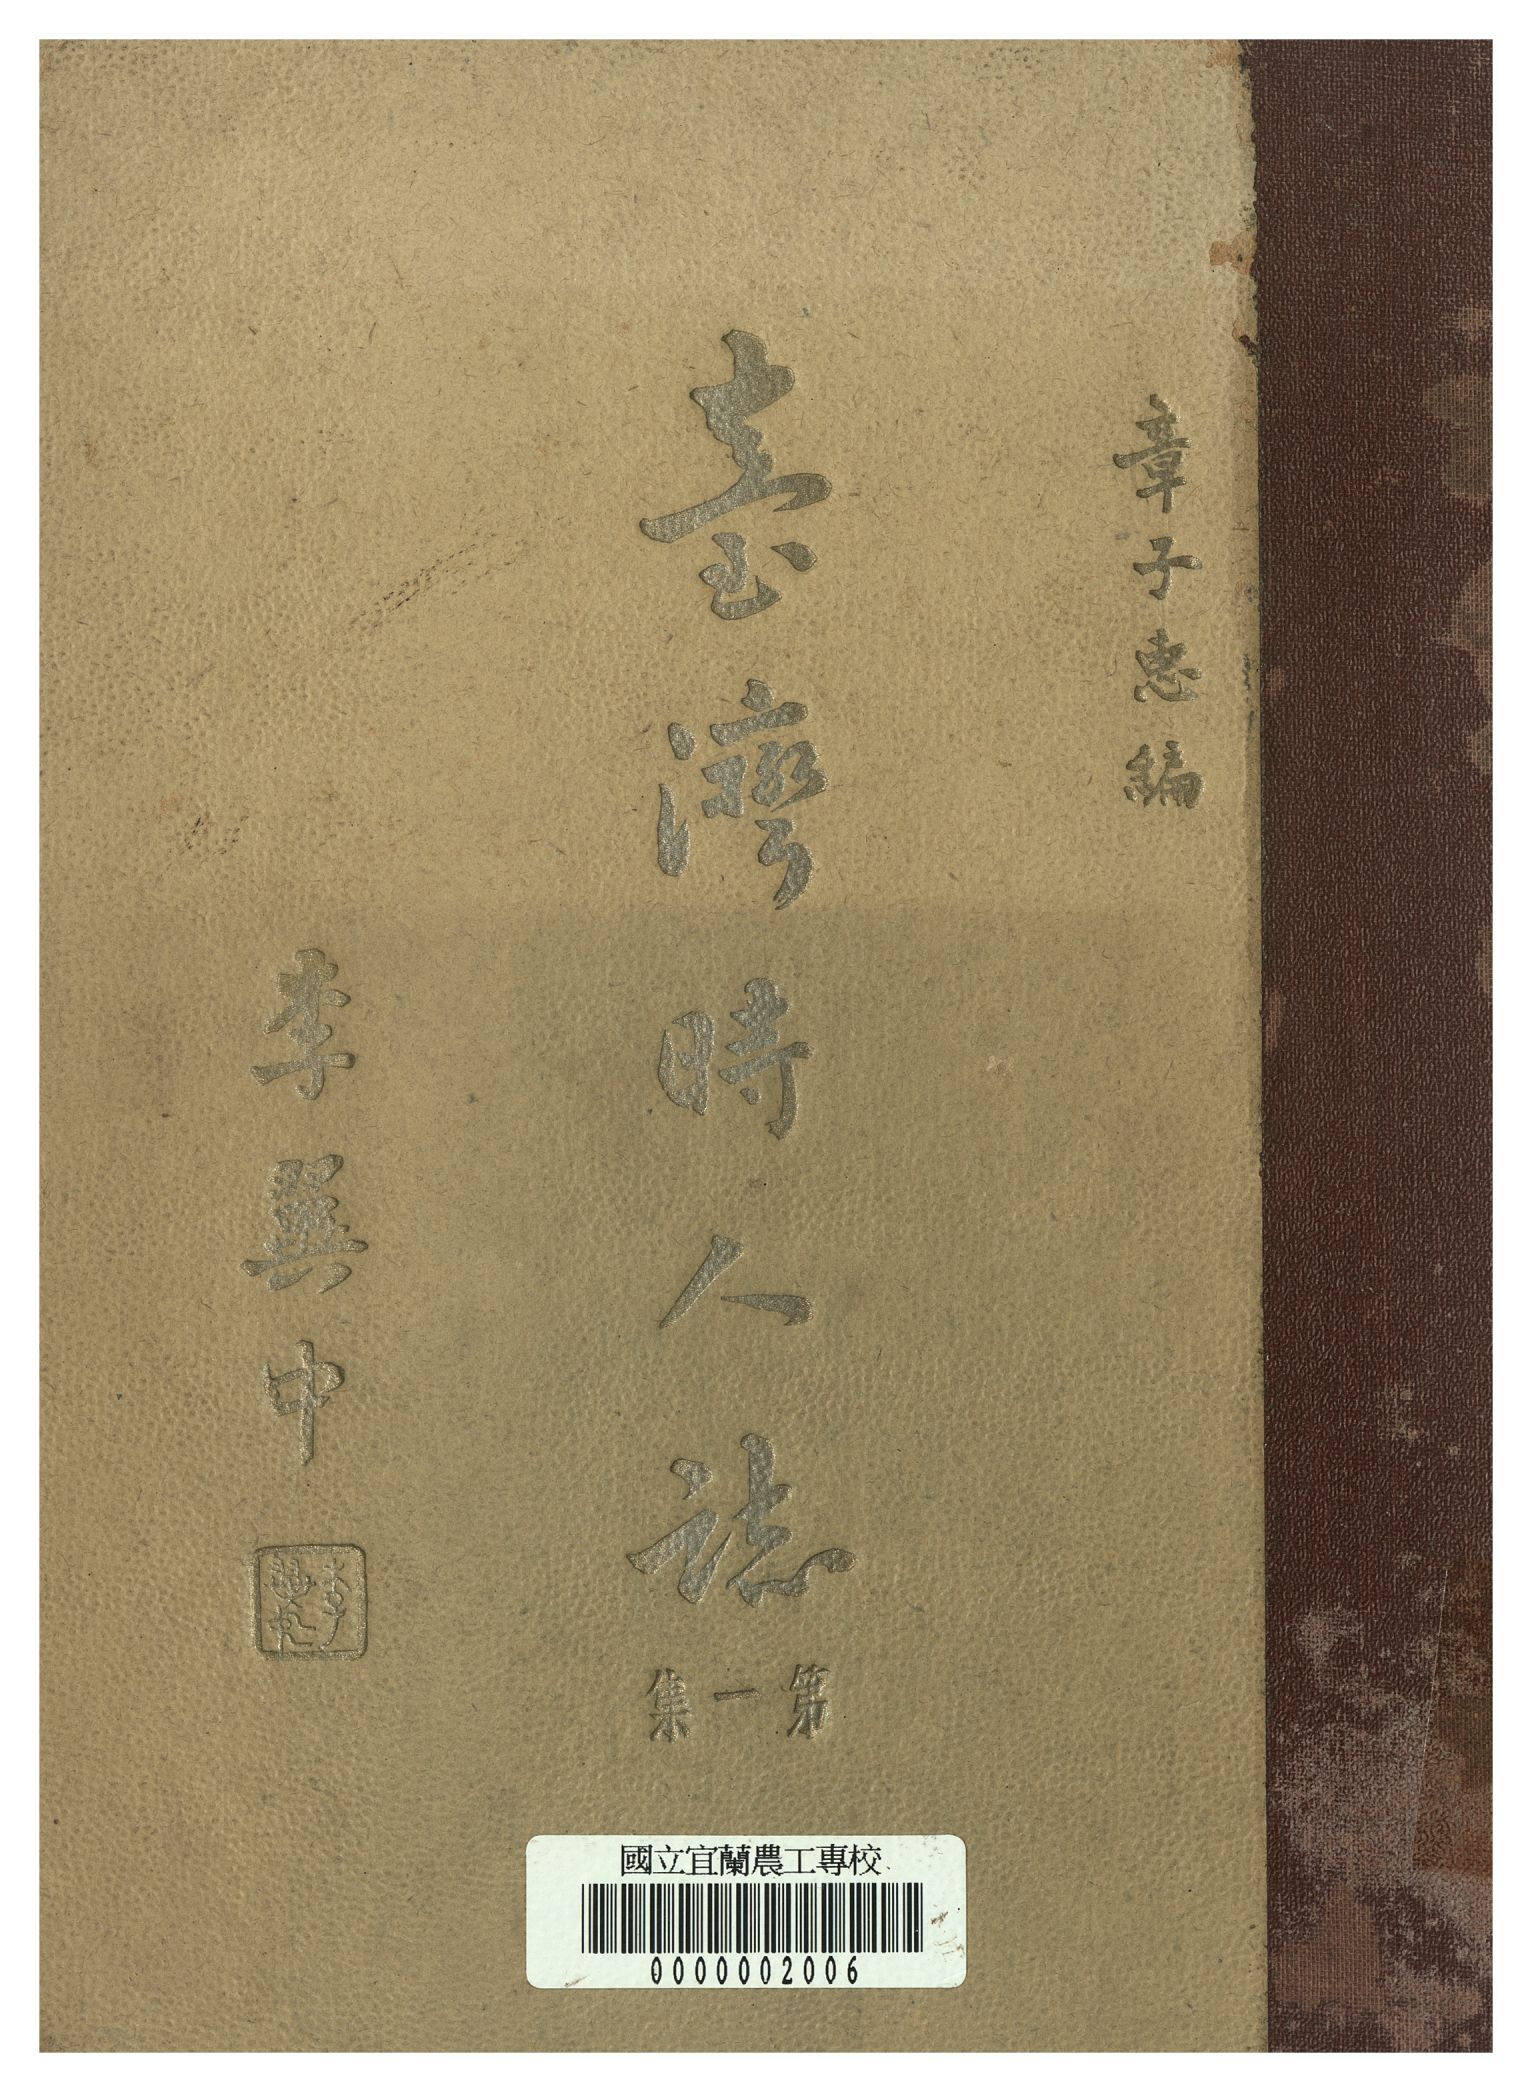 章子惠編
臺灣時人誌
第一集
李翼中
國立宜蘭農工專校
0000002006